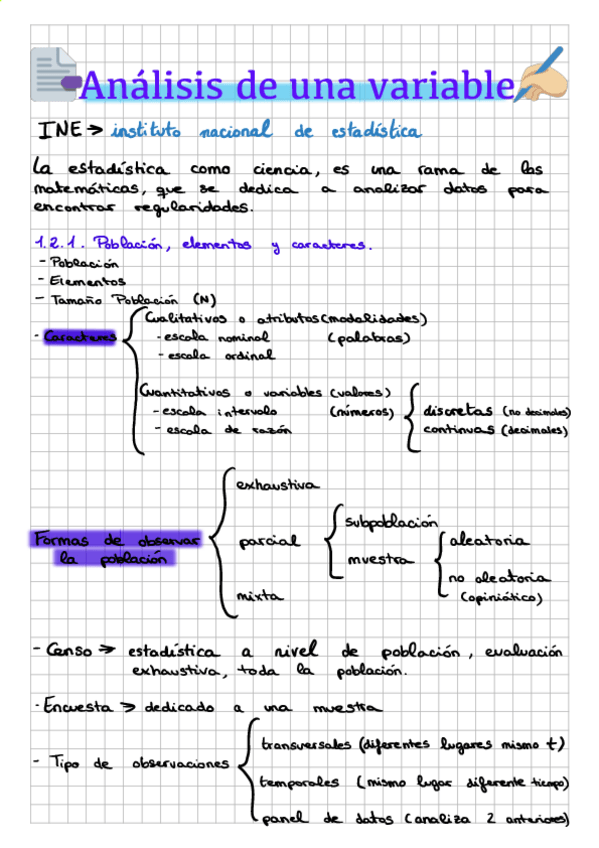 Análisis de una variable
INE → instituto nacional de estadística
La estadística como ciencia, es una rama de las
matemáticas, que se dedica a analizar datos para
encontrar regularidades.
1.2.1. Población, elementos y caracteres.
- Población
- Elementos
- Tamaño Población (N)
- Caracteres
Cualitativos o atributos (modalidades)
- escala nominal (palabras)
- escala ordinal
Cuantitativos o variables (valores)
- escala intervalo (números)
- escala de razón
discretas (no decimales)
continuas (decimales)
Formas de observar
la población
exhaustiva
parcial
mixta
subpoblación
muestra
aleatoria
no aleatoria
(opiniático)
- Censo → estadística a nivel de población, evaluación
exhaustiva, toda la población.
- Encuesta → dedicado a una muestra
- Tipo de observaciones
transversales (diferentes lugares mismo t)
temporales (mismo lugar diferente tiempo)
panel de datos (analiza 2 anteriores)